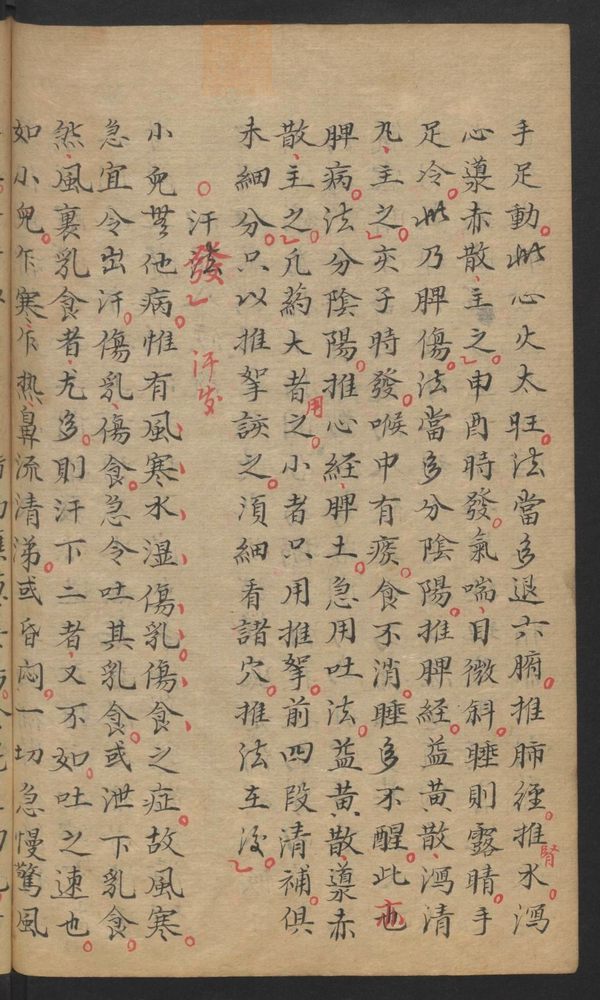 手足動。此心火太旺。法當多退六腑。推肺經。推腎水。瀉
心導赤散、主之。申酉時發。氣喘、目微斜。睡則露睛。手
足冷。此乃脾傷。法當多分陰陽。推脾經。益黃散、瀉清
丸、主之。亥子時發。喉中有痰。食不消。睡多不醒。此
脾病。法分陰陽。推心經、脾土。急用吐法。益黃散、導赤
散、主之。凡藥大者用之。小者只用推拏。前四段清補。俱
未細分。只以推拏談之。須細看諸穴。推法在後。
○汗發 汗發
小兒無他病。惟有風、寒、水、濕、傷乳、傷食、之症。故風寒。
急宜令出汗。傷乳、傷食。急令吐其乳食。或泄下乳食。
然、風裏乳食者、尤多。則汗下二者、又不如吐之速也。
如小兒。乍寒、乍热、鼻流清涕。或昏悶。一切急慢驚風